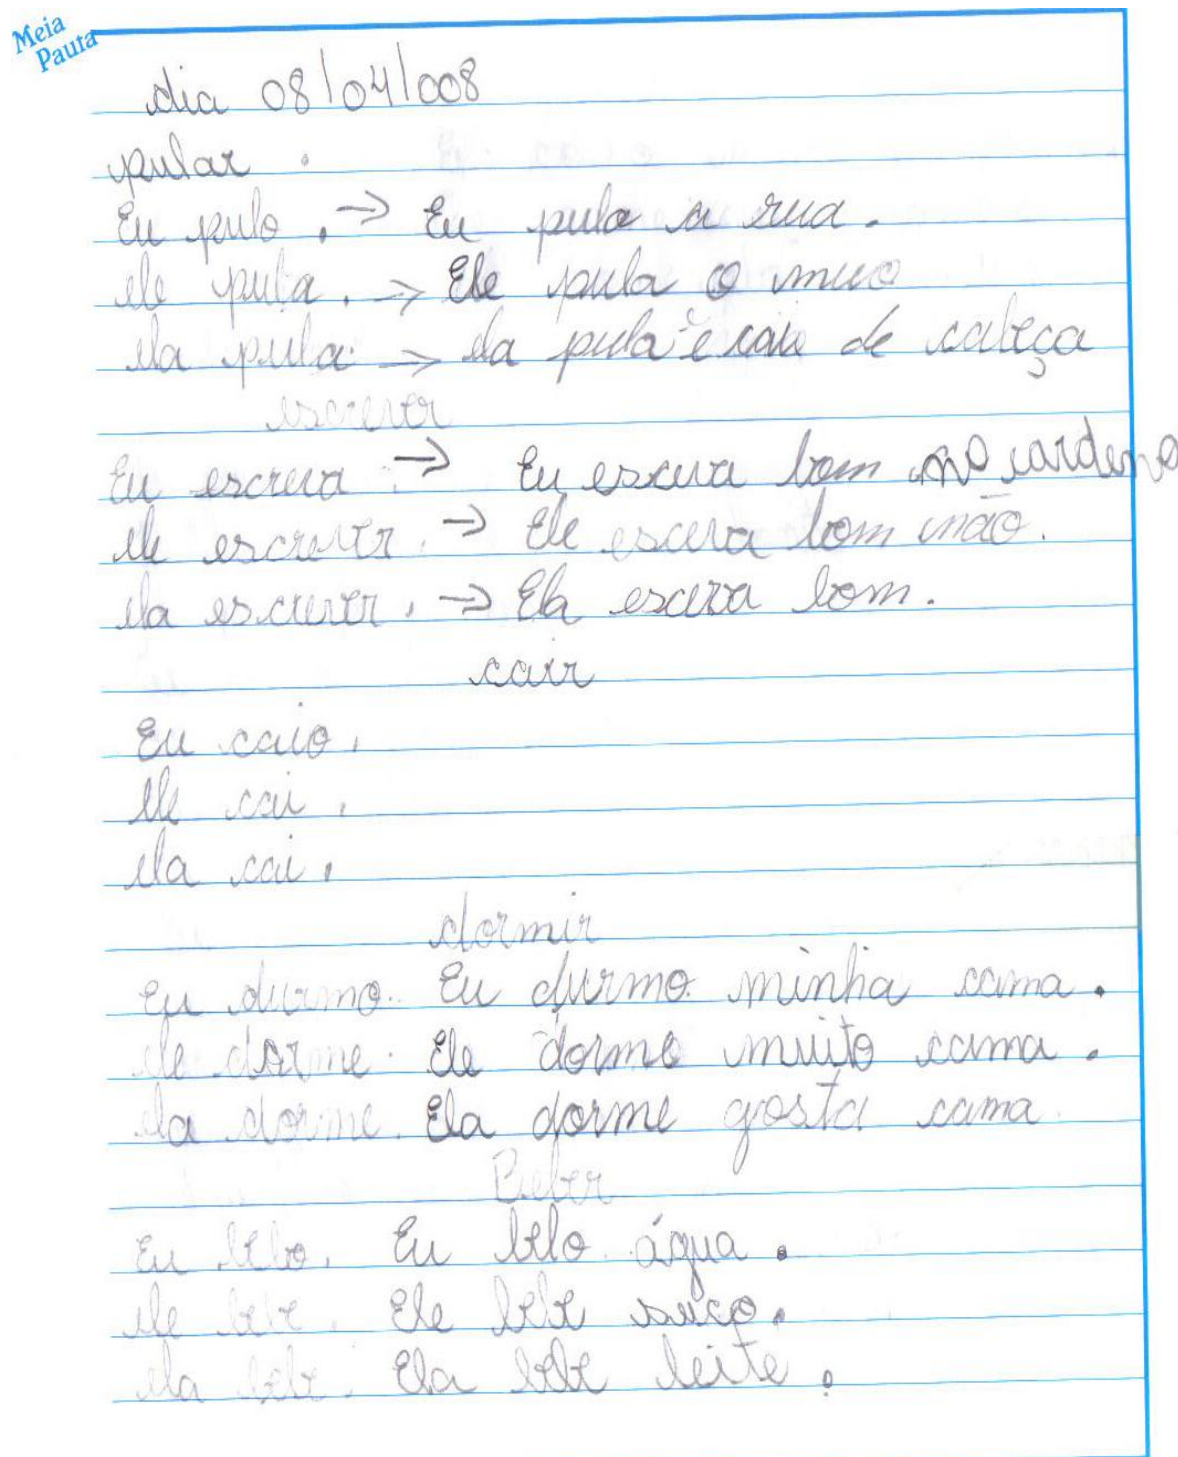 Meia
Pauta
dia 08/04/008
pular.
Eu pulo. → Eu pula a rua.
ele pula. → Ele pula o muo
ela pula. → ela pula e caiu de cabeça
escrever
Eu escreva. → Eu escreva bom no carderno
ele escrever. → Ele esceva bom mão.
ela escrever. → Ela esceva bom.
cair
Eu caio.
ele cai.
ela cai.
dormir
Eu durmo. Eu durmo minha cama.
ele dorme. Ele dorme muito cama.
ela dorme. Ela dorme gosta cama.
Beber
Eu bebo. Eu bebo água.
ele bebe. Ele bebe suco.
ela bebe. Ela bebe leite.